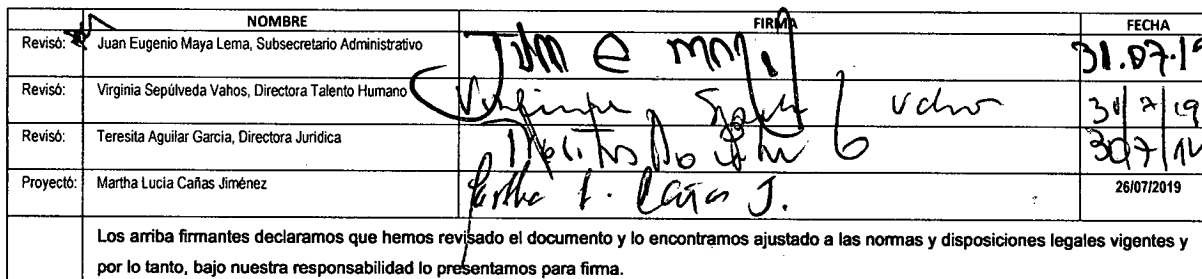 NOMBRE FIRMA FECHA
Revisó: Juan Eugenio Maya Lema, Subsecretario Administrativo Juan e maya 31.07.19
Revisó: Virginia Sepúlveda Vahos, Directora Talento Humano Virginia Vahos 31/7/19
Revisó: Teresita Aguilar Garcia, Directora Jurídica
Proyectó: Martha Lucia Cañas Jiménez Martha L. Cañas J. 26/07/2019
Los arriba firmantes declaramos que hemos revisado el documento y lo encontramos ajustado a las normas y disposiciones legales vigentes y
por lo tanto, bajo nuestra responsabilidad lo presentamos para firma.